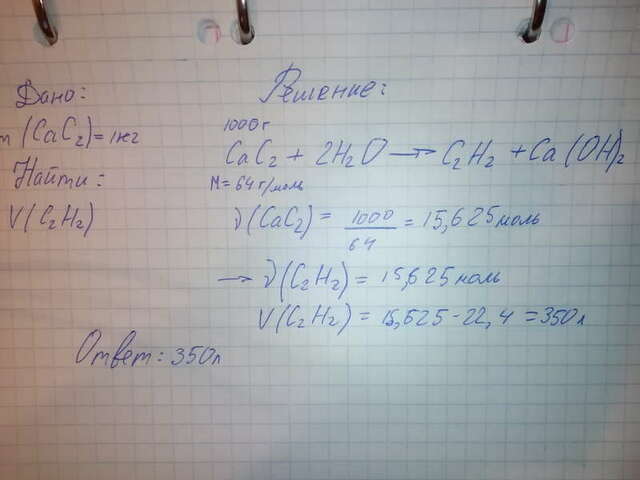 Дано:
m (CaC2) = 1кг
Найти:
V(C2H2)
Решение:
1000г
CaC2 + 2H2O → C2H2 + Ca(OH)2
M = 64 г/моль
ν(CaC2) = 1000/64 = 15,625 моль
→ ν(C2H2) = 15,625 моль
V(C2H2) = 15,625 · 22,4 = 350 л
Ответ: 350 л